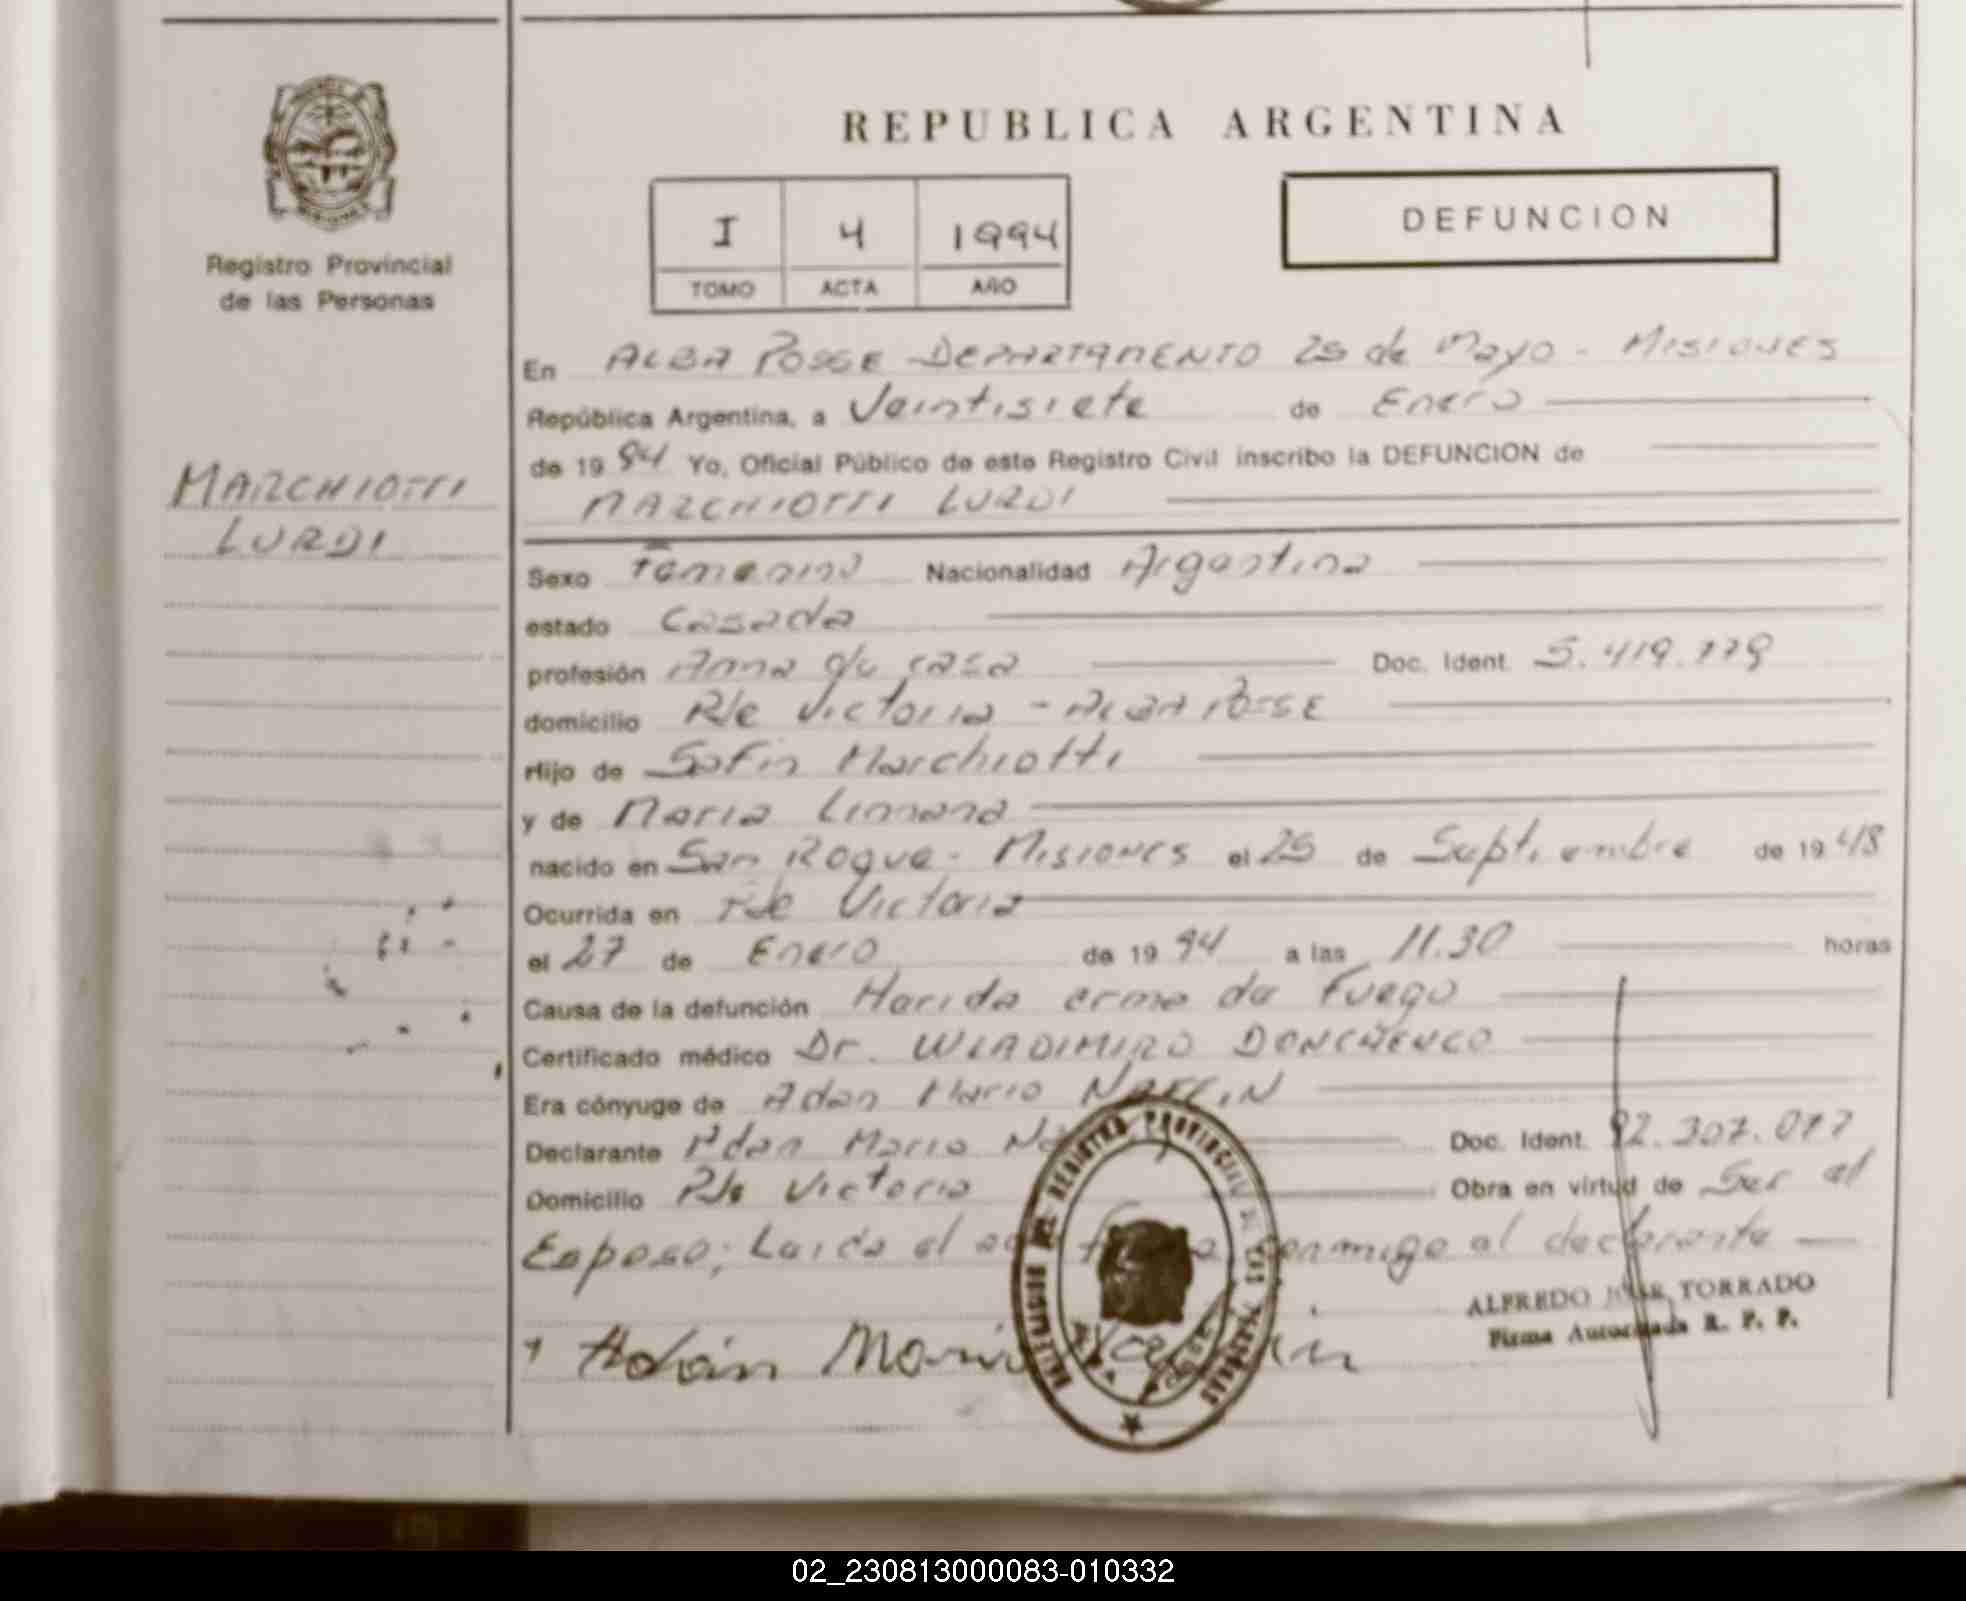 REPUBLICA ARGENTINA
Registro Provincial
de las Personas
I 4 1994
TOMO ACTA AÑO
DEFUNCION
MARCHIOTTI
LURDI
En ALBA POSSE - DEPARTAMENTO 25 de Mayo - MISIONES
República Argentina, a Veintisiete de Enero
de 19 94 Yo, Oficial Público de este Registro Civil inscribo la DEFUNCION de
MARCHIOTTI LURDI
Sexo Femenino Nacionalidad Argentina
estado Casada
profesión Ama de casa Doc. Ident. 5.419.779
domicilio Pje Victoria - ALBA POSSE
Hijo de Safin Marchiotti
y de Maria
nacido en San Roque - Misiones el 25 de Septiembre de 19 48
Ocurrida en Pje Victoria
el 27 de Enero de 19 94 a las 11.30 horas
Causa de la defunción Herida arma de Fuego
Certificado médico Dr. WLADIMIRO
Era cónyuge de Adan Mario
Declarante Adan Mario Doc. Ident. 92.307.077
Domicilio Pje Victoria Obra en virtud de Ser el
Esposo; Leida el acta firma conmigo el declarante
Adán Mario
ALFREDO JOSE TORRADO
Firma Autorizada R. P. P.
REGISTRO PROVINCIAL DE LAS PERSONAS
02_230813000083-010332